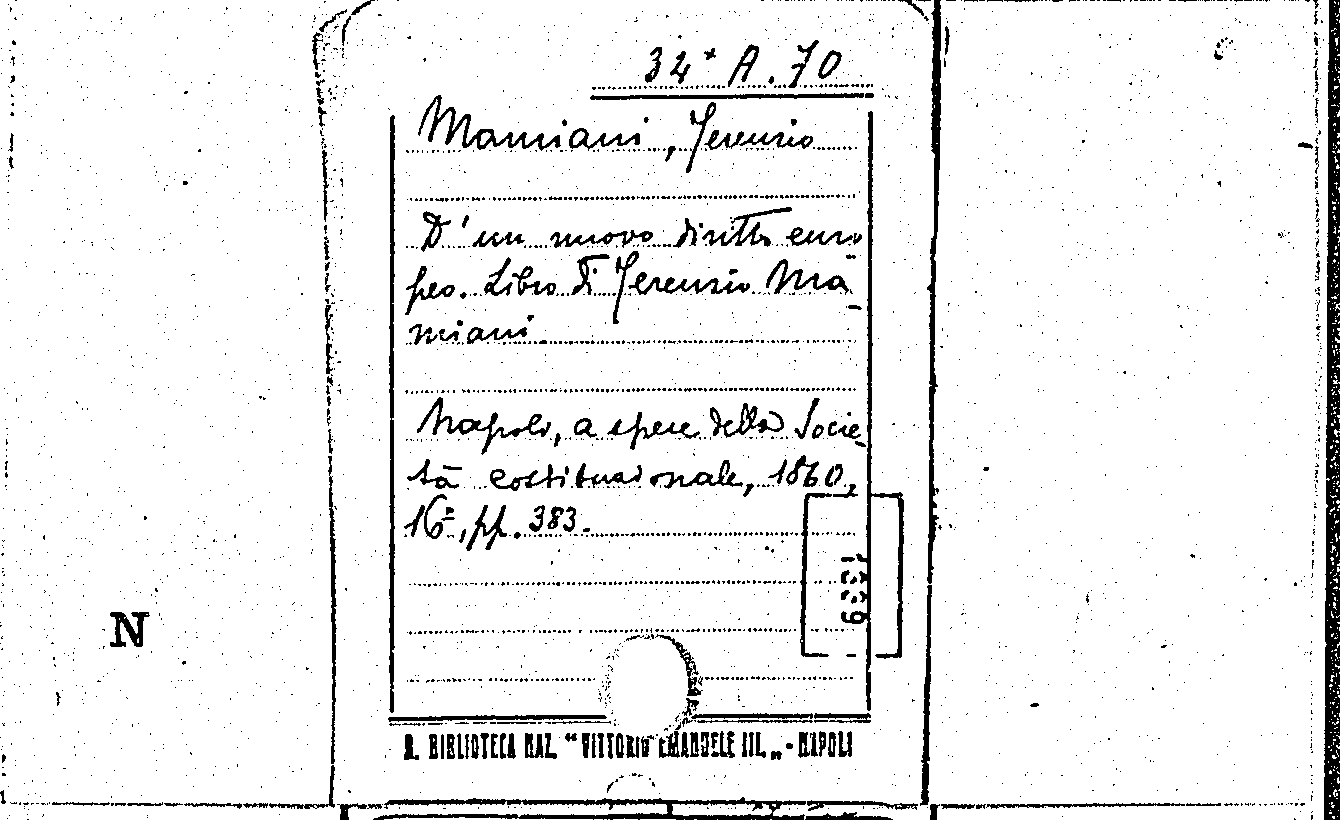 34* A. 70
Mamiani, Terenzio
D'un nuovo diritto euro
peo. Libro di Terenzio Ma-
miani.
Napoli, a spese della Socie-
tà costituzionale, 1860,
16º, pp. 383.
N
R. BIBLIOTECA NAZ. “VITTORIO EMANUELE III.„ - NAPOLI